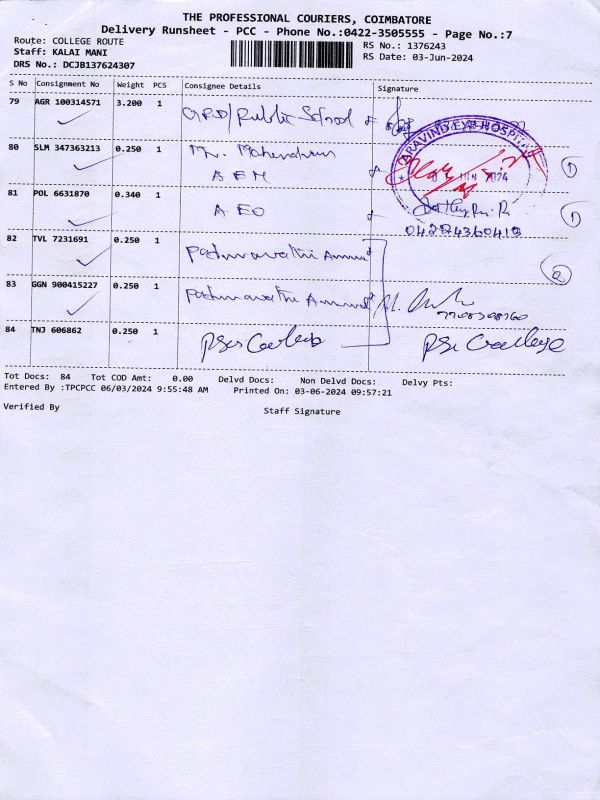 THE PROFESSIONAL COURIERS, COIMBATORE
Delivery Runsheet - PCC - Phone No.:0422-3505555 - Page No.:7
Route: COLLEGE ROUTE
RS No.: 1376243
Staff: KALAI MANI
RS Date: 03-Jun-2024
DRS No.: DCJB137624307
S No Consignment No Weight PCS Consignee Details Signature
79 AGR 100314571 3.200 1 Public School
80 SLM 347363213 0.250 1 Mr. Mahendran
AEH
ARAVIND EYE HOSPITAL
JUN 2024
1
81 POL 6631870 0.340 1 AEO
1
04284360418
82 TVL 7231691 0.250 1 Padmavathi Ammal
2
83 GGN 900415227 0.250 1 Padmavathi Ammal
7708308760
84 TNJ 606862 0.250 1 PSG College PSG College
Tot Docs: 84 Tot COD Amt: 0.00 Delvd Docs: Non Delvd Docs: Delvy Pts:
Entered By :TPCPCC 06/03/2024 9:55:48 AM Printed On: 03-06-2024 09:57:21
Verified By
Staff Signature